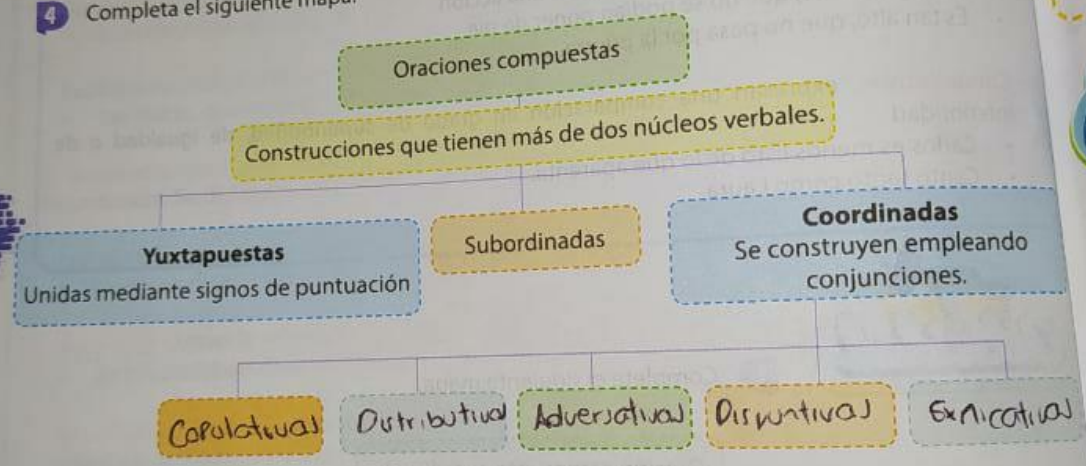 4 Completa el siguiente mapa.
Oraciones compuestas
Construcciones que tienen más de dos núcleos verbales.
Yuxtapuestas
Unidas mediante signos de puntuación
Subordinadas
Coordinadas
Se construyen empleando
conjunciones.
Copulativas
Distributivas
Adversativas
Disyuntivas
Explicativas